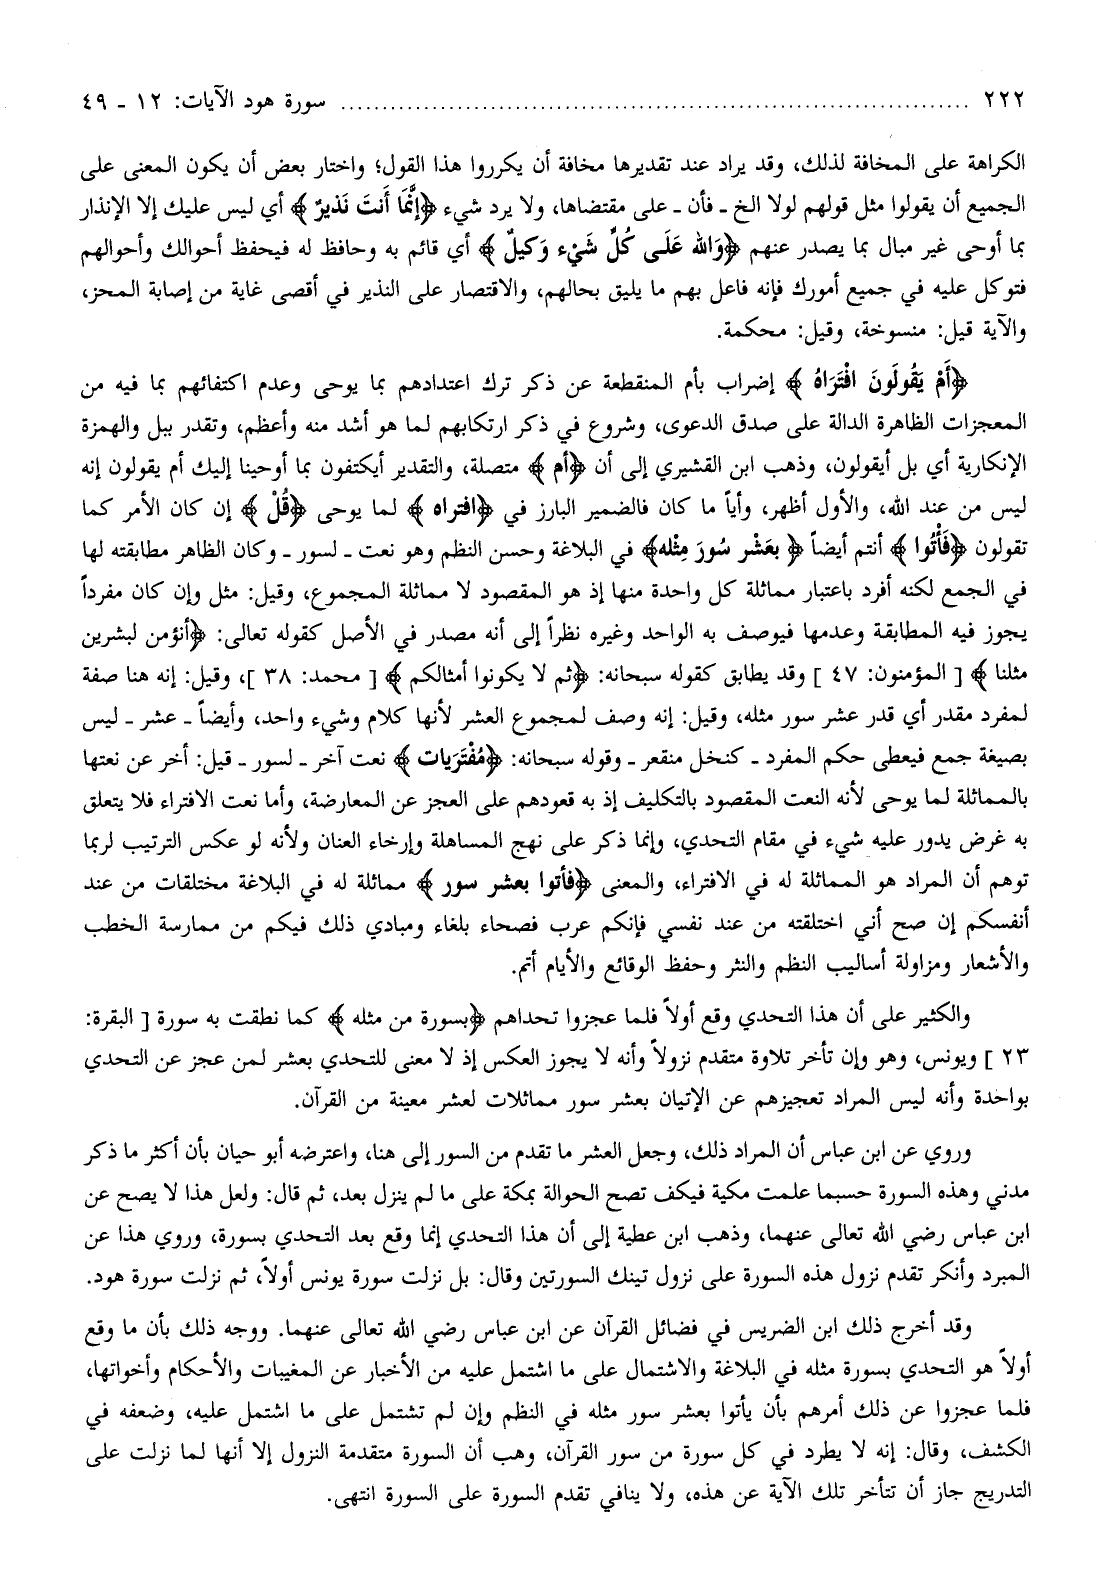 ٢٢٢ ........................................................................... سورة هود الآيات: ١٢ ـ ٤٩
الكراهة على المخافة لذلك، وقد يراد عند تقديرها مخافة أن يكرروا هذا القول؛ واختار بعض أن يكون المعنى على
الجميع أن يقولوا مثل قولهم لولا الخ ـ فأن ـ على مقتضاها، ولا يرد شيء ﴿إِنَّمَا أَنتَ نَذيرٌ﴾ أي ليس عليك إلا الإنذار
بما أوحى غير مبال بما يصدر عنهم ﴿وَالله عَلَى كُلِّ شَيْء وَكيلٌ﴾ أي قائم به وحافظ له فيحفظ أحوالك وأحوالهم
فتوكل عليه في جميع أمورك فإنه فاعل بهم ما يليق بحالهم، والاقتصار على النذير في أقصى غاية من إصابة المحز،
والآية قيل: منسوخة، وقيل: محكمة.
﴿أَمْ يَقُولُونَ افْتَرَاهُ﴾ إضراب بأم المنقطعة عن ذكر ترك اعتدادهم بما يوحى وعدم اكتفائهم بما فيه من
المعجزات الظاهرة الدالة على صدق الدعوى، وشروع في ذكر ارتكابهم لما هو أشد منه وأعظم، وتقدر ببل والهمزة
الإنكارية أي بل أيقولون، وذهب ابن القشيري إلى أن ﴿أم﴾ متصلة، والتقدير أيكتفون بما أوحينا إليك أم يقولون إنه
ليس من عند الله، والأول أظهر، وأياً ما كان فالضمير البارز في ﴿افتراه﴾ لما يوحى ﴿قُلْ﴾ إن كان الأمر كما
تقولون ﴿فَأْتُوا﴾ أنتم أيضاً ﴿بعَشْر سُورَ مِثْله﴾ في البلاغة وحسن النظم وهو نعت ـ لسور ـ وكان الظاهر مطابقته لها
في الجمع لكنه أفرد باعتبار مماثلة كل واحدة منها إذ هو المقصود لا مماثلة المجموع، وقيل: مثل وإن كان مفرداً
يجوز فيه المطابقة وعدمها فيوصف به الواحد وغيره نظراً إلى أنه مصدر في الأصل كقوله تعالى: ﴿أنؤمن لبشرين
مثلنا﴾ [ المؤمنون: ٤٧ ] وقد يطابق كقوله سبحانه: ﴿ثم لا يكونوا أمثالكم﴾ [ محمد: ٣٨ ]، وقيل: إنه هنا صفة
لمفرد مقدر أي قدر عشر سور مثله، وقيل: إنه وصف لمجموع العشر لأنها كلام وشيء واحد، وأيضاً ـ عشر ـ ليس
بصيغة جمع فيعطى حكم المفرد ـ كنخل منقعر ـ وقوله سبحانه: ﴿مُفْتَرَيات﴾ نعت آخر ـ لسور ـ قيل: أخر عن نعتها
بالمماثلة لما يوحى لأنه النعت المقصود بالتكليف إذ به قعودهم على العجز عن المعارضة، وأما نعت الافتراء فلا يتعلق
به غرض يدور عليه شيء في مقام التحدي، وإنما ذكر على نهج المساهلة وإرخاء العنان ولأنه لو عكس الترتيب لربما
توهم أن المراد هو المماثلة له في الافتراء، والمعنى ﴿فأتوا بعشر سور﴾ مماثلة له في البلاغة مختلقات من عند
أنفسكم إن صح أني اختلقته من عند نفسي فإنكم عرب فصحاء بلغاء ومبادي ذلك فيكم من ممارسة الخطب
والأشعار ومزاولة أساليب النظم والنثر وحفظ الوقائع والأيام أتم.
والكثير على أن هذا التحدي وقع أولاً فلما عجزوا تحداهم ﴿بسورة من مثله﴾ كما نطقت به سورة [ البقرة:
٢٣ ] ويونس، وهو وإن تأخر تلاوة متقدم نزولاً وأنه لا يجوز العكس إذ لا معنى للتحدي بعشر لمن عجز عن التحدي
بواحدة وأنه ليس المراد تعجيزهم عن الإتيان بعشر سور مماثلات لعشر معينة من القرآن.
وروي عن ابن عباس أن المراد ذلك، وجعل العشر ما تقدم من السور إلى هنا، واعترضه أبو حيان بأن أكثر ما ذكر
مدني وهذه السورة حسبما علمت مكية فيكف تصح الحوالة بمكة على ما لم ينزل بعد، ثم قال: ولعل هذا لا يصح عن
ابن عباس رضي الله تعالى عنهما، وذهب ابن عطية إلى أن هذا التحدي إنما وقع بعد التحدي بسورة، وروي هذا عن
المبرد وأنكر تقدم نزول هذه السورة على نزول تينك السورتين وقال: بل نزلت سورة يونس أولاً، ثم نزلت سورة هود.
وقد أخرج ذلك ابن الضريس في فضائل القرآن عن ابن عباس رضي الله تعالى عنهما. ووجه ذلك بأن ما وقع
أولاً هو التحدي بسورة مثله في البلاغة والاشتمال على ما اشتمل عليه من الأخبار عن المغيبات والأحكام وأخواتها،
فلما عجزوا عن ذلك أمرهم بأن يأتوا بعشر سور مثله في النظم وإن لم تشتمل على ما اشتمل عليه، وضعفه في
الكشف، وقال: إنه لا يطرد في كل سورة من سور القرآن، وهب أن السورة متقدمة النزول إلا أنها لما نزلت على
التدريج جاز أن تتأخر تلك الآية عن هذه، ولا ينافي تقدم السورة على السورة انتهى.